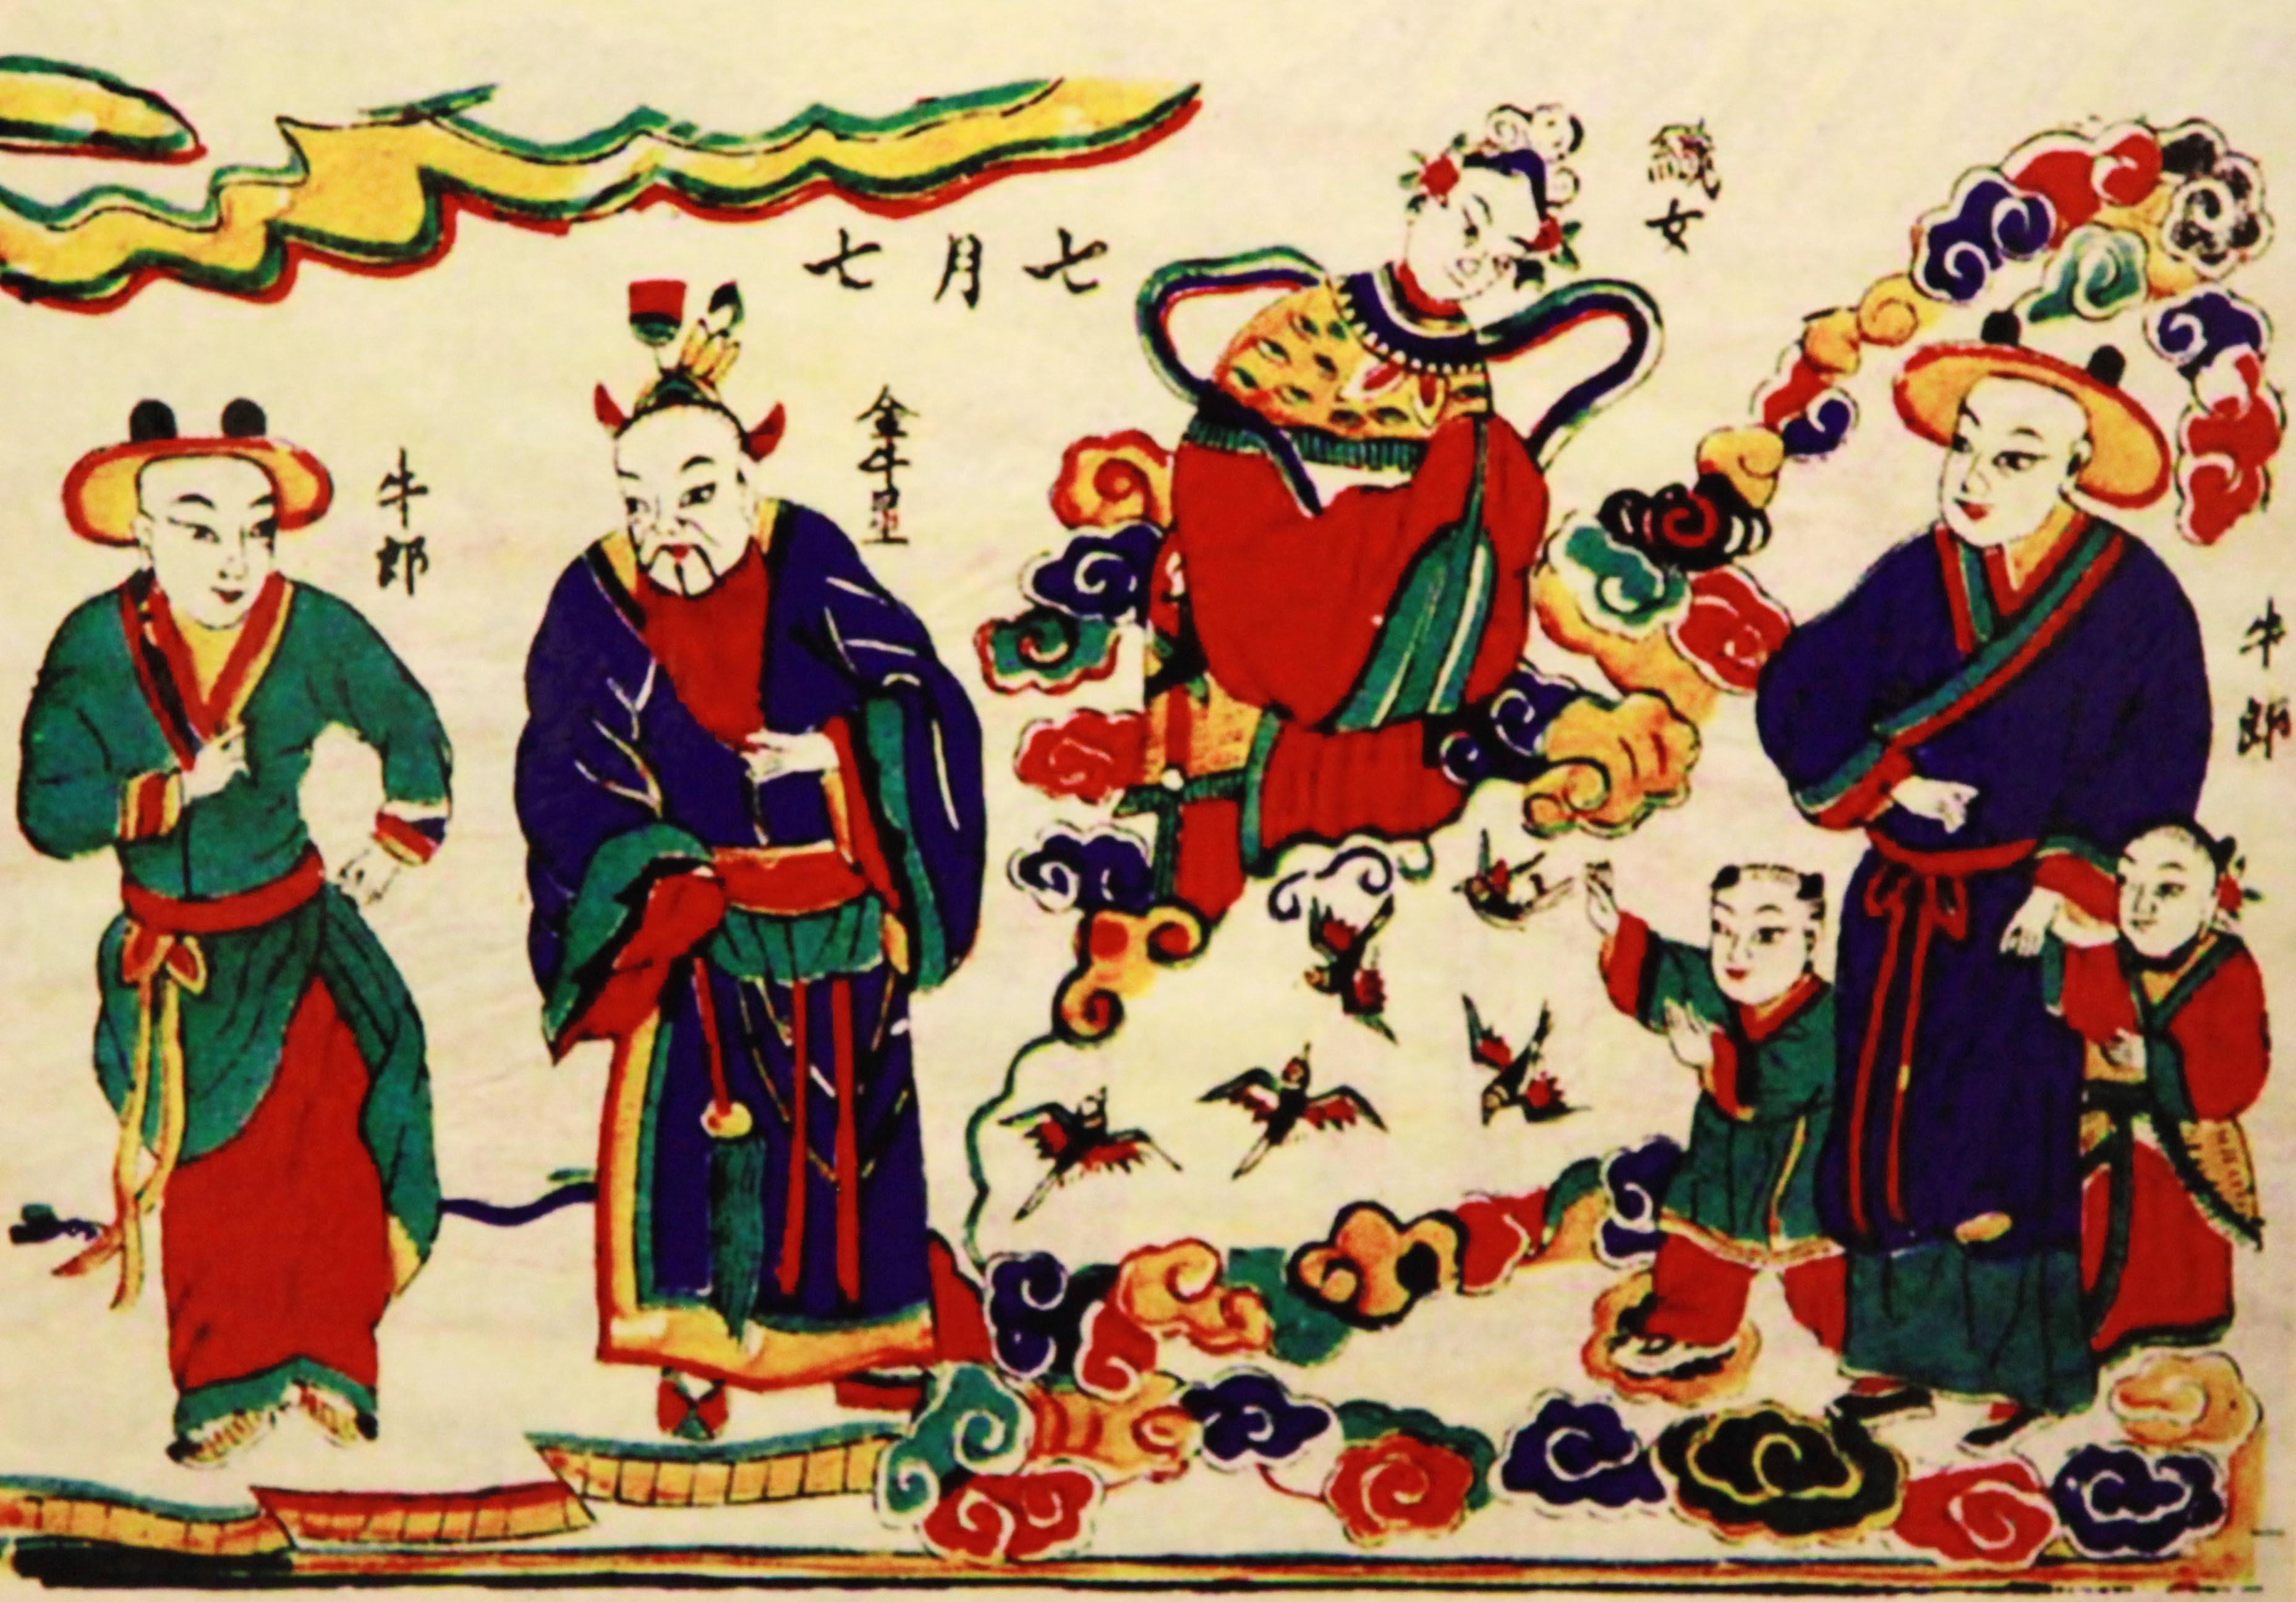 牛郎
織女
七月七
金牛星
牛郎